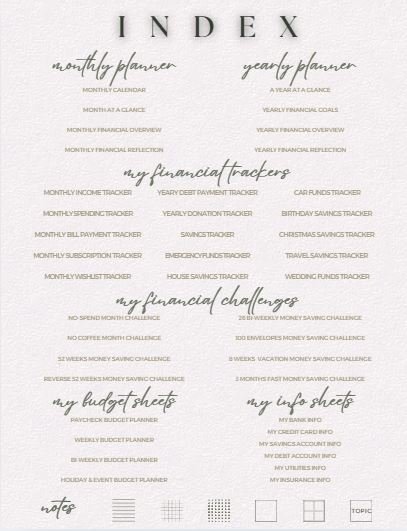 INDEX
monthly planner
MONTHLY CALENDAR
MONTH AT A GLANCE
MONTHLY FINANCIAL OVERVIEW
MONTHLY FINANCIAL REFLECTION
yearly planner
A YEAR AT A GLANCE
YEARLY FINANCIAL GOALS
YEARLY FINANCIAL OVERVIEW
YEARLY FINANCIAL REFLECTION
my financial trackers
MONTHLY INCOME TRACKER
MONTHLY SPENDING TRACKER
MONTHLY BILL PAYMENT TRACKER
MONTHLY SUBSCRIPTION TRACKER
MONTHLY WISHLIST TRACKER
YEARY DEBT PAYMENT TRACKER
YEARLY DONATION TRACKER
SAVINGS TRACKER
EMERGENCY FUNDS TRACKER
HOUSE SAVINGS TRACKER
CAR FUNDS TRACKER
BIRTHDAY SAVINGS TRACKER
CHRISTMAS SAVINGS TRACKER
TRAVEL SAVINGS TRACKER
WEDDING FUNDS TRACKER
my financial challenges
NO-SPEND MONTH CHALLENGE
NO COFFEE MONTH CHALLENGE
52 WEEKS MONEY SAVING CHALLENGE
REVERSE 52 WEEKS MONEY SAVING CHALLENGE
26 BI-WEEKLY MONEY SAVING CHALLENGE
100 ENVELOPES MONEY SAVING CHALLENGE
8 WEEKS VACATION MONEY SAVING CHALLENGE
3 MONTHS FAST MONEY SAVING CHALLENGE
my budget sheets
PAYCHECK BUDGET PLANNER
WEEKLY BUDGET PLANNER
BI-WEEKLY BUDGET PLANNER
HOLIDAY & EVENT BUDGET PLANNER
my info sheets
MY BANK INFO
MY CREDIT CARD INFO
MY SAVINGS ACCOUNT INFO
MY DEBT ACCOUNT INFO
MY UTILITIES INFO
MY INSURANCE INFO
notes
TOPIC